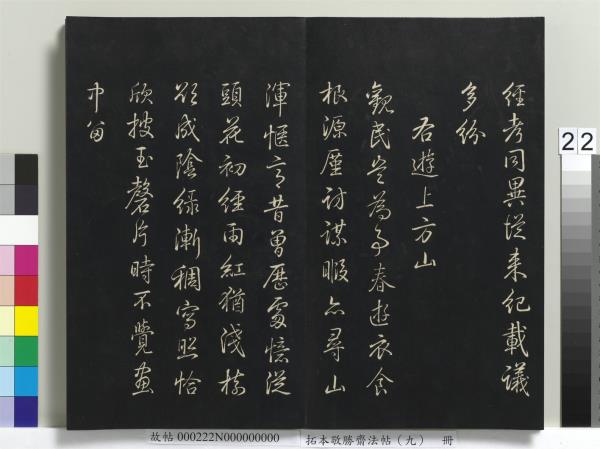 經考同異從來紀載議
多紛
右遊上方山
觀民豈為事春遊衣食
根源廑訪謀暇亦尋山
渾愜意昔曾歷處憶從
頭花初經雨紅猶淺樹
欲成陰綠漸稠寫照恰
欣披玉磬片時不覺畫
中留
22
故帖 000222N000000000
拓本敬勝齋法帖（九） 冊